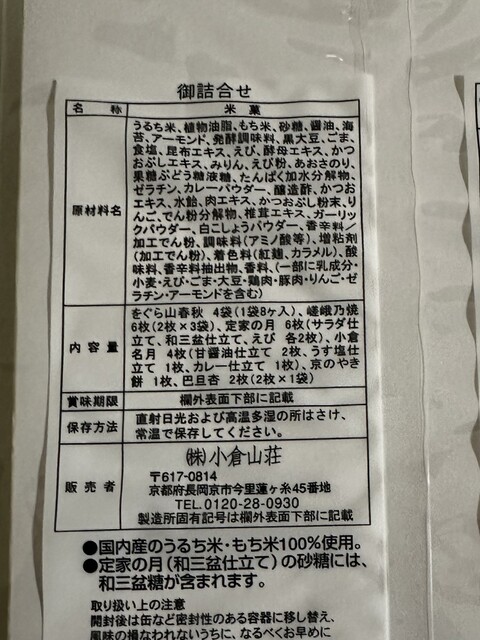 御詰合せ
名称 米菓
原材料名 うるち米、植物油脂、もち米、砂糖、醤油、海
苔、アーモンド、発酵調味料、黒大豆、ごま、
食塩、昆布エキス、えび、酵母エキス、かつ
おぶしエキス、みりん、えび粉、あおさのり、
果糖ぶどう糖液糖、たんぱく加水分解物、
ゼラチン、カレーパウダー、醸造酢、かつお
エキス、水飴、肉エキス、かつおぶし粉末、り
んご、でん粉分解物、椎茸エキス、ガーリッ
クパウダー、白こしょうパウダー、香辛料/
加工でん粉、調味料(アミノ酸等)、増粘剤
(加工でん粉)、着色料(紅麹、カラメル)、酸
味料、香辛料抽出物、香料、(一部に乳成分・
小麦・えび・ごま・大豆・鶏肉・豚肉・りんご・ゼ
ラチン・アーモンドを含む)
内容量 をぐら山春秋 4袋(1袋8ヶ入)、嵯峨乃焼
6枚(2枚×3袋)、定家の月 6枚(サラダ仕
立て、和三盆仕立て、えび 各2枚)、小倉
名月 4枚(甘醤油仕立て 2枚、うす塩仕
立て 1枚、カレー仕立て 1枚)、京のやき
餅 1枚、巴旦杏 2枚(2枚×1袋)
賞味期限 欄外表面下部に記載
保存方法 直射日光および高温多湿の所はさけ、
常温で保存してください。
販売者 ㈱小倉山荘
〒617-0814
京都府長岡京市今里蓮ヶ糸45番地
TEL.0120-28-0930
製造所固有記号は欄外表面下部に記載
●国内産のうるち米・もち米100%使用。
●定家の月(和三盆仕立て)の砂糖には、
和三盆糖が含まれます。
取り扱い上の注意
開封後は缶など密封性のある容器に移し替え、
風味の損なわれないうちに、なるべくお早めに